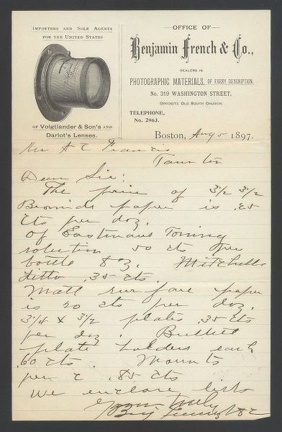 IMPORTERS AND SOLE AGENTS
FOR THE UNITED STATES
OF Voigtlander & Son's AND
Darlot's Lenses.
OFFICE OF
Benjamin French & Co.,
DEALERS IN
PHOTOGRAPHIC MATERIALS, OF EVERY DESCRIPTION.
No. 319 WASHINGTON STREET,
OPPOSITE OLD SOUTH CHURCH
TELEPHONE,
No. 2963.
Boston, Aug 5 1897.
Mr A C Francis
Taunton
Dear Sir:
The price of 3½ 3½
Bromide paper is .25
cts per doz.
Of Eastmans Toning
solution 50 cts per
bottle 8 oz. Mitchells
ditto .35 cts
Matt surface paper
is 20 cts per doz.
3¼ x 3½ plates .35 cts
per doz. Bullet
plate holders each
60 cts. Mounts
per C .85 cts
We enclose lists
Yours truly
Benj French & Co